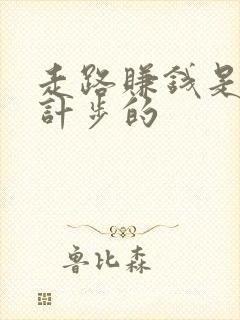 走路賺錢是
計步的
魯比森